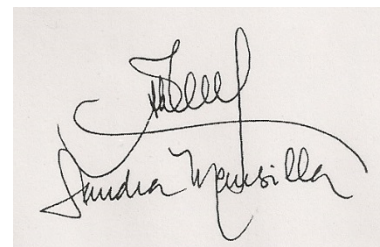 Sandra Mansilla